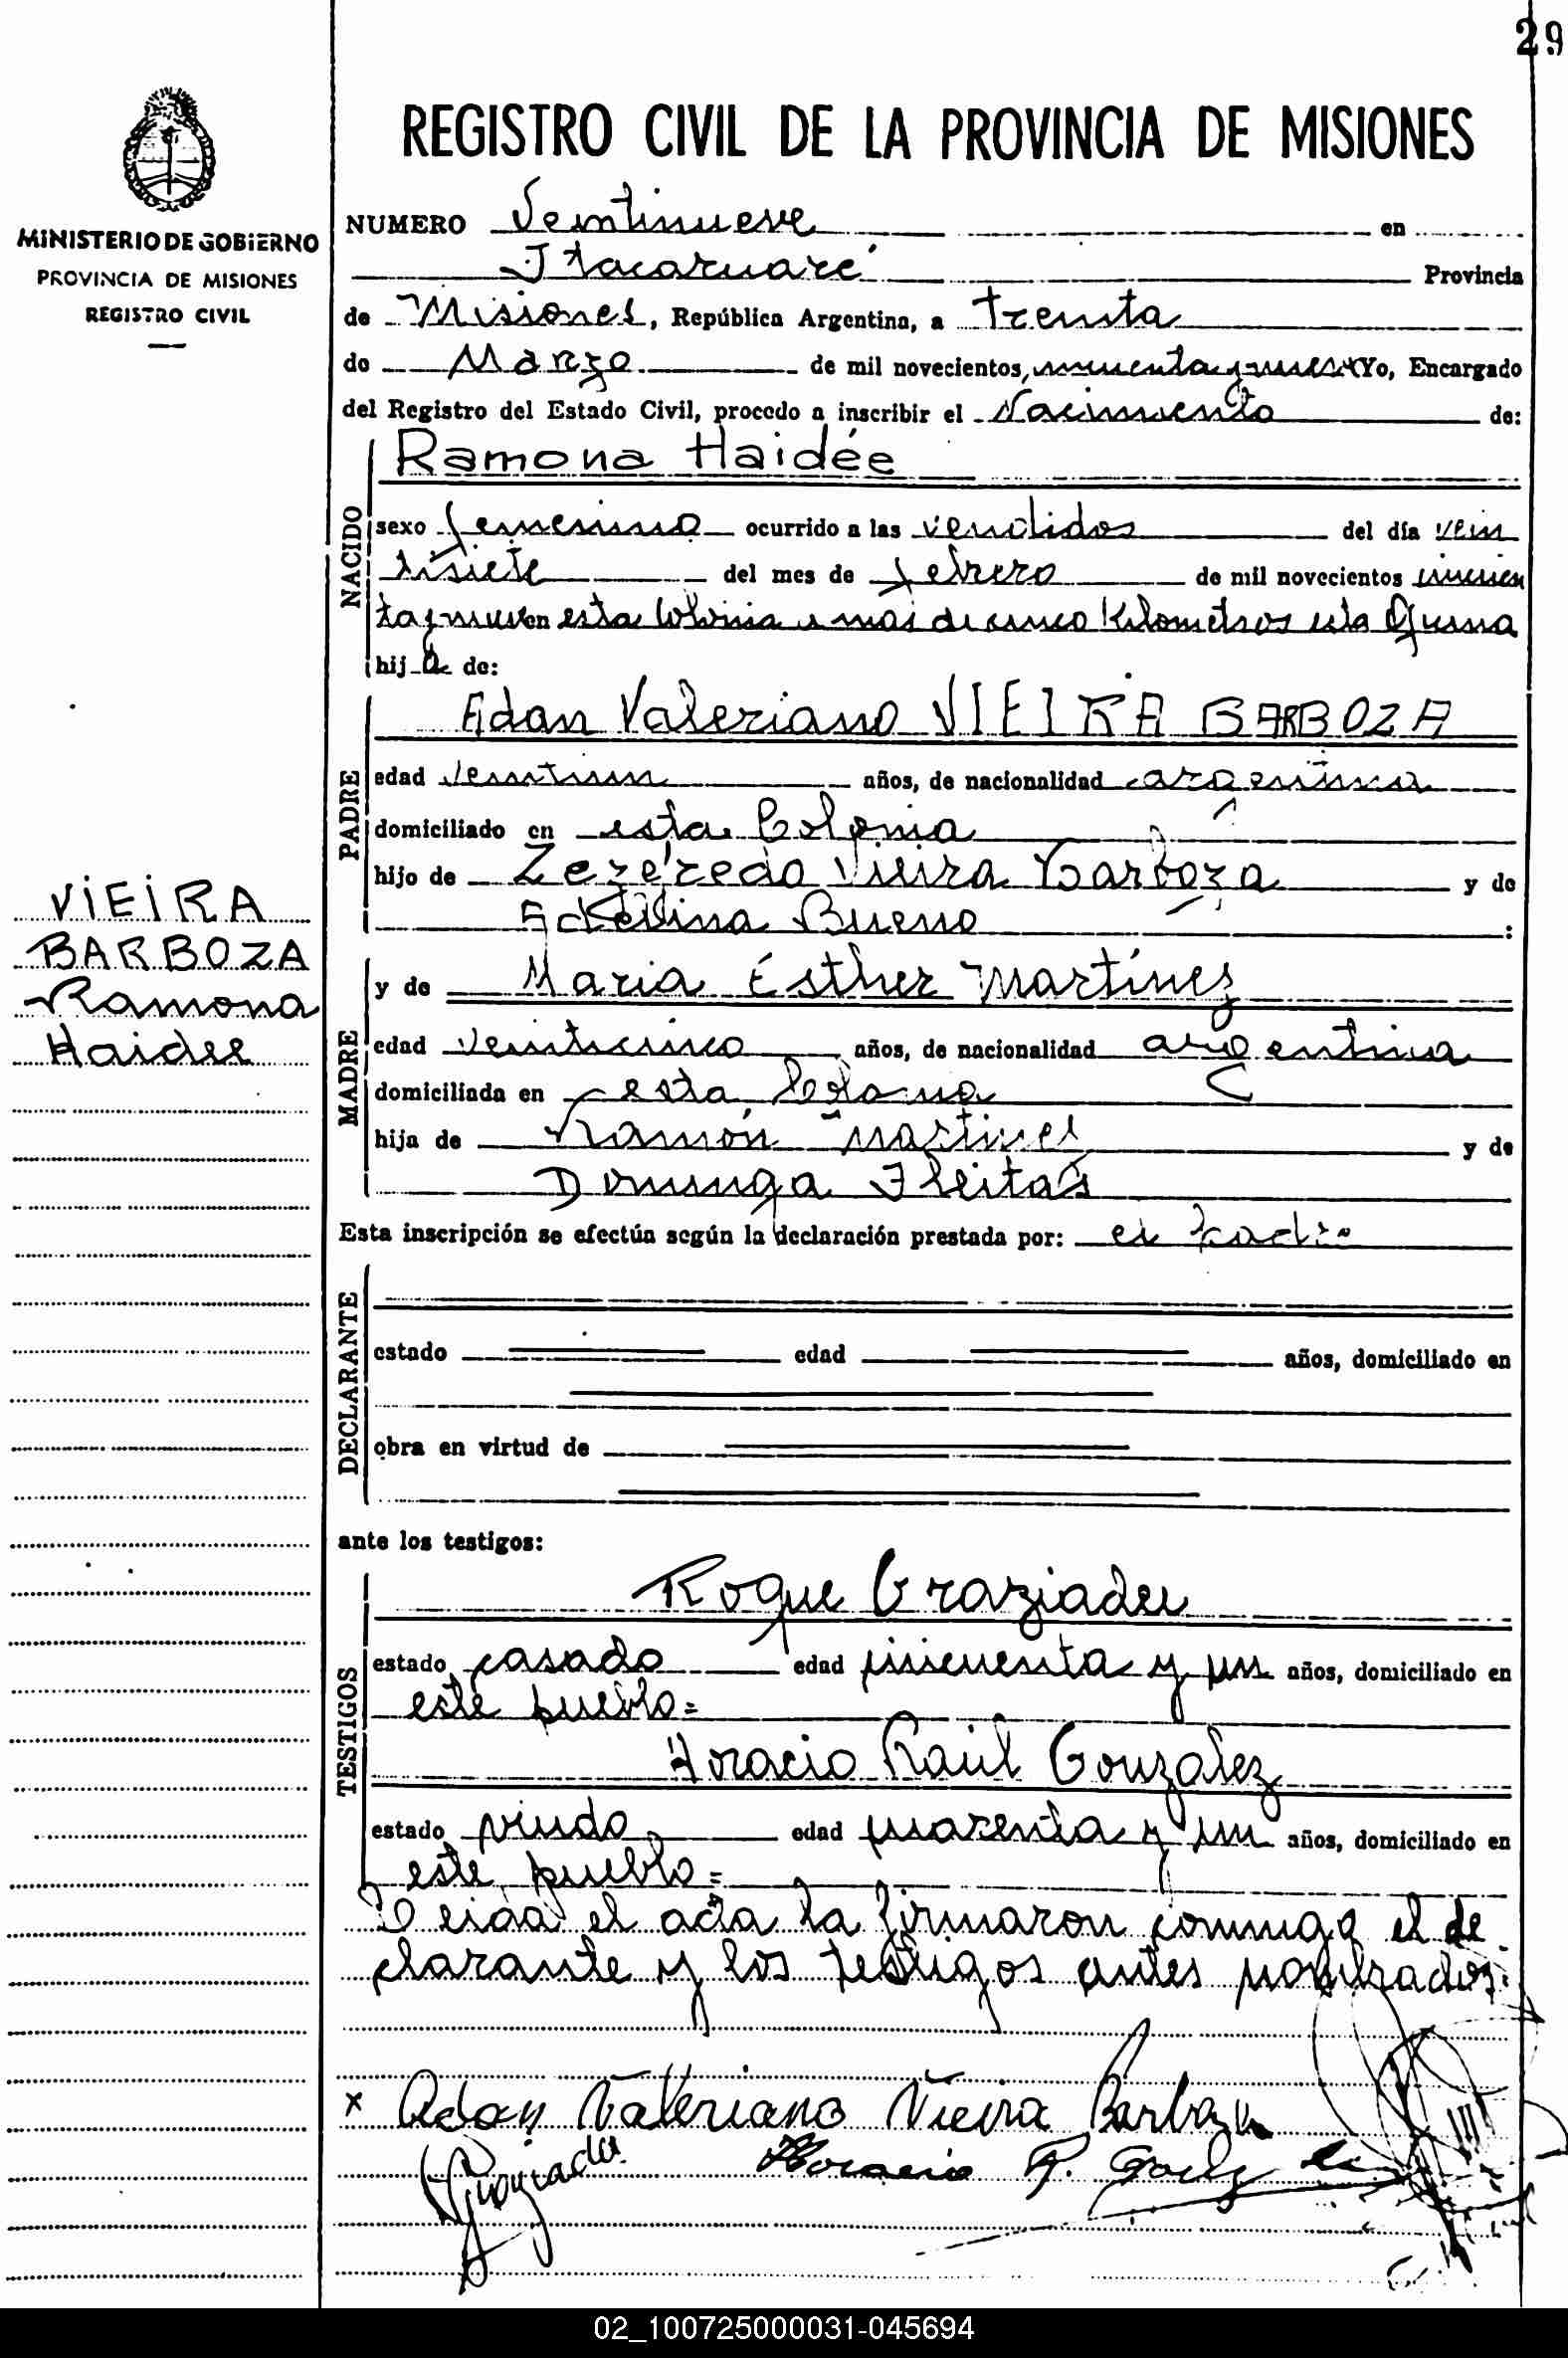 29
REGISTRO CIVIL DE LA PROVINCIA DE MISIONES
MINISTERIO DE GOBIERNO
PROVINCIA DE MISIONES
REGISTRO CIVIL
NUMERO Veintinueve en
Itacaruaré Provincia
de Misiones, República Argentina, a treinta
de Marzo de mil novecientos, cincuenta y nueve Yo, Encargado
del Registro del Estado Civil, procedo a inscribir el Nacimiento de:
Ramona Haidée
NACIDO
sexo femenino ocurrido a las veintidos del día vein
tisiete del mes de febrero de mil novecientos cincuen
ta y nueve en esta Colonia a mas de cinco Kilometros esta Oficina
hija de:
PADRE
Adan Valeriano VIEIRA BARBOZA
edad veintiun años, de nacionalidad argentina
domiciliado en esta Colonia
hijo de Vieira Barboza y de
Bueno :
VIEIRA
BARBOZA
Ramona
Haidee
MADRE
y de Maria Esther Martínez
edad veinticinco años, de nacionalidad argentina
domiciliada en esta Colonia
hija de Ramón Martinez y de
Dominga Fleitas
Esta inscripción se efectúa según la declaración prestada por: el padre
DECLARANTE
estado edad años, domiciliado en
obra en virtud de
ante los testigos:
TESTIGOS
Roque Graziadei
estado casado edad cincuenta y un años, domiciliado en
este pueblo=
Horacio Raúl Gonzalez
estado viudo edad cuarenta y un años, domiciliado en
este pueblo=
Leida el acta la firmaron conmigo el de
clarante y los testigos antes nombrados.
x Adan Valeriano Vieira Barboza
Horacio R.
02_100725000031-045694